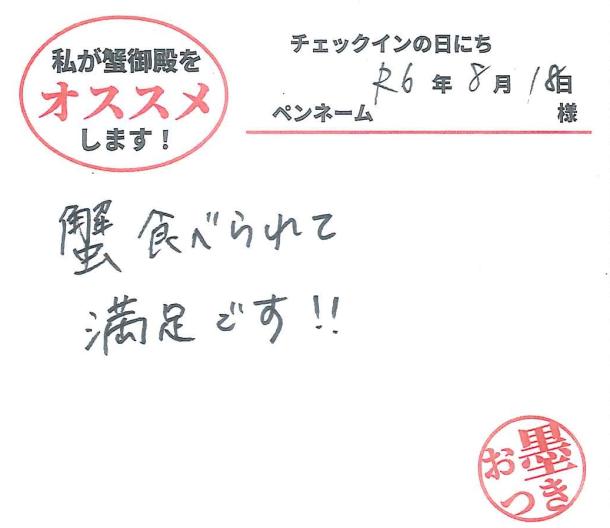 私が蟹御殿を
オススメ
します！
チェックインの日にち
R6年8月18日
ペンネーム 様
蟹食べられて
満足です!!
お墨
つき